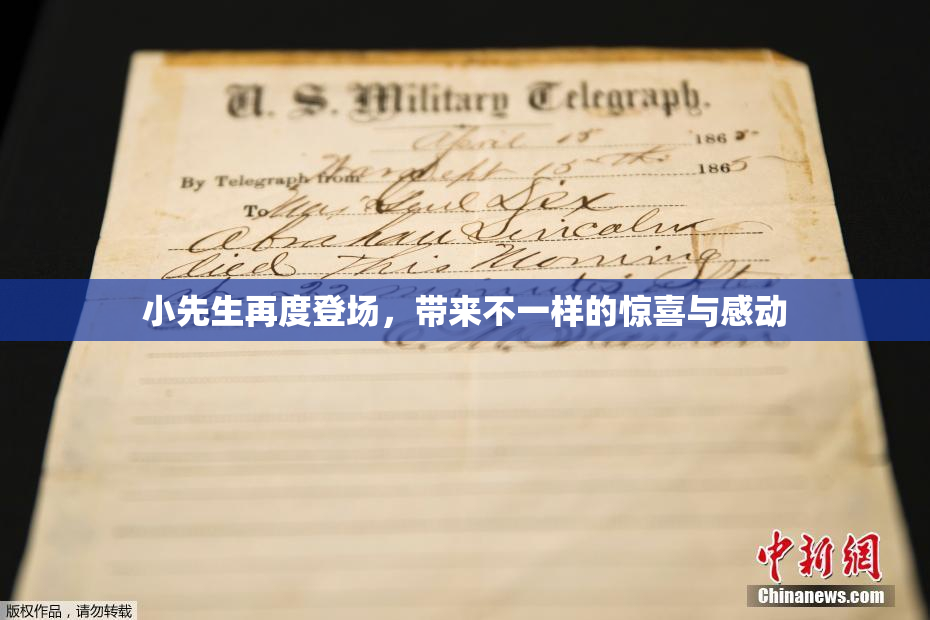 U. S. Military Telegraph.
April 15 1865
By Telegraph from War Dept 15th 1865
To Maj Genl Dix
Abraham Lincoln
died This Morning
at 22 minutes after
小先生再度登场，带来不一样的惊喜与感动
E. M. Stanton
中新網
Chinanews.com
版权作品，请勿转载